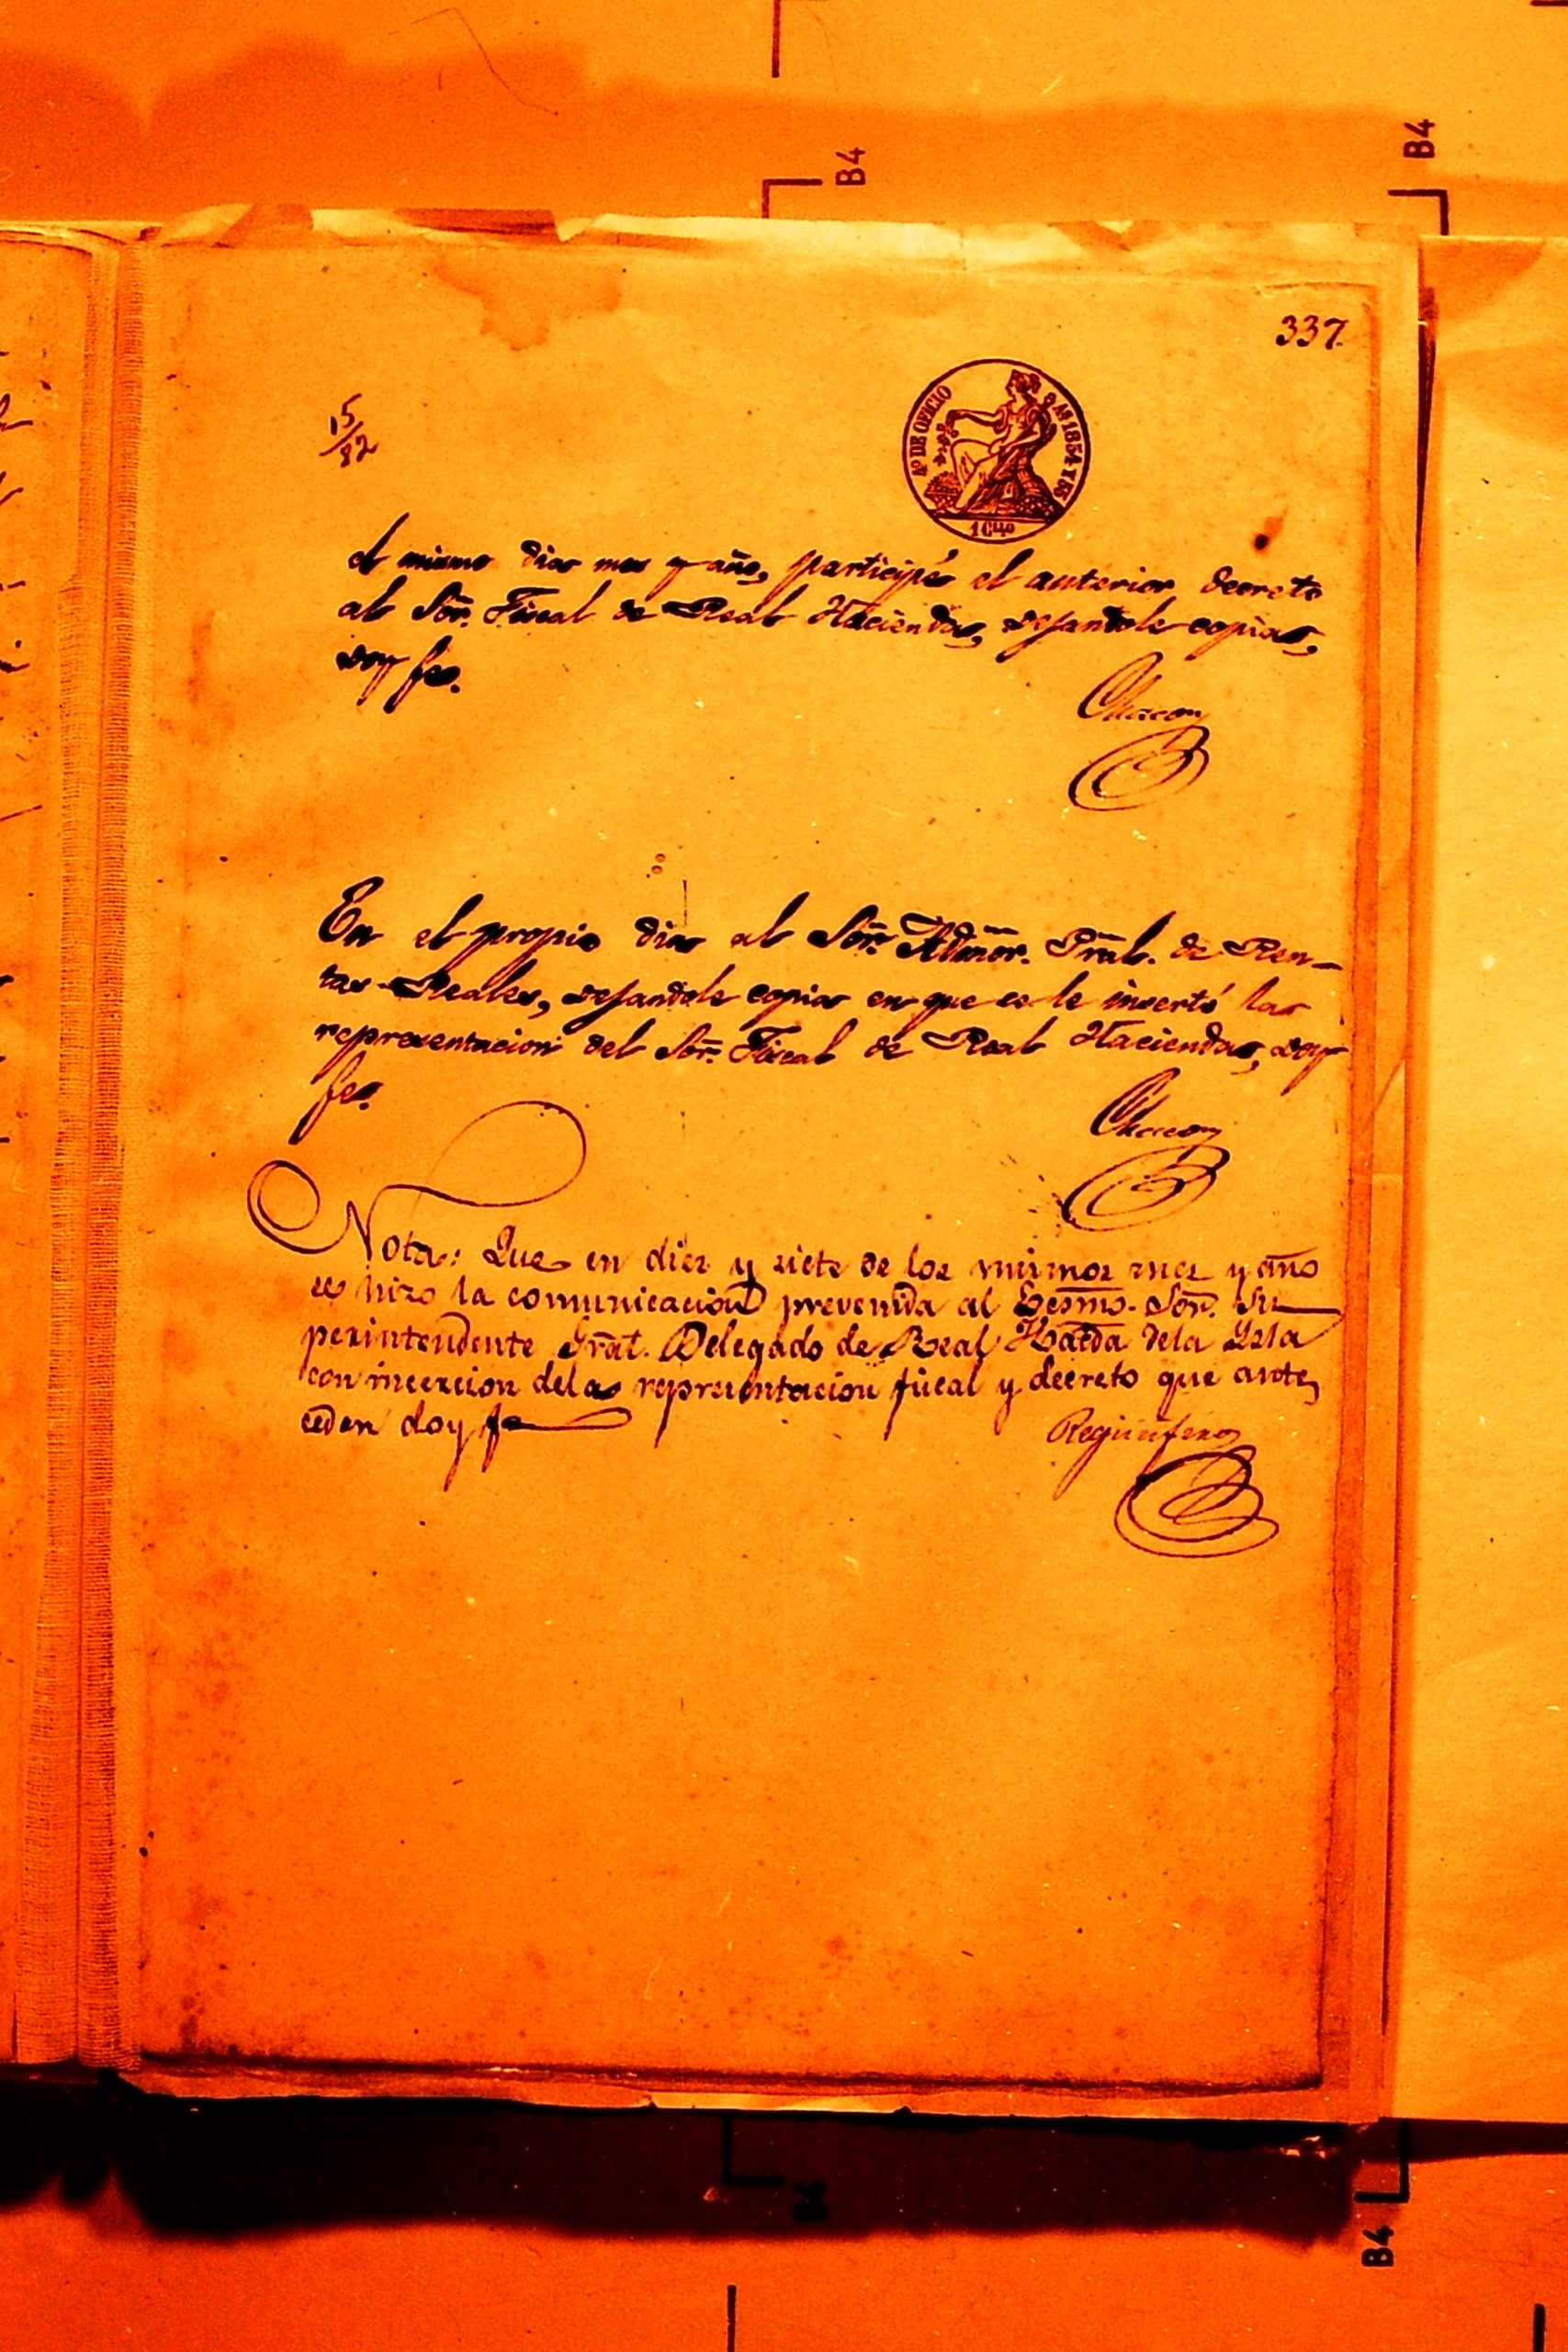 B4
B4
337.
15
82
4º DE OFICIO
AS 1854 Y 55
1Ctto
el mismo dia mes y año, participé el anterior decreto
al Sõr. Fiscal de Real Hacienda, dejandole copia,
doy fe.
Chacon
En el propio dia al Sõr. Admor. Pral. de Ren-
tas Reales, dejandole copia en que se le insertó la
representacion del Sõr. Fiscal de Real Hacienda, doy
fe.
Chacon
Nota: Que en diez y siete de los mismos mes y año
se hizo la comunicacion prevenida al Escmo. Sõr. Su
perintendente Gral. Delegado de Real Hacda dela Ysla
con insercion dela representacion fiscal y decreto que ante,
ceden doy fe
B4
B4